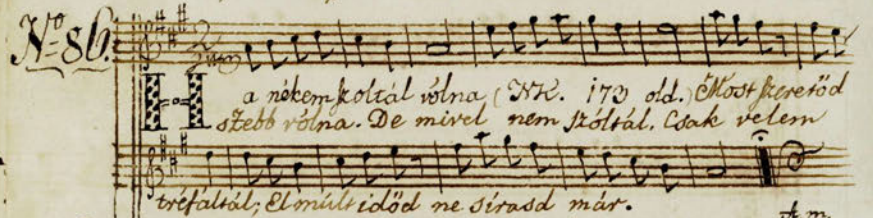 No 86.
Ha nékem szoltál vólna (NK. 173 old.) Most szeretőd
szebb vólna. De mivel nem szóltál. Csak velem
tréfáltál; Elmúlt időd ne sirasd már.